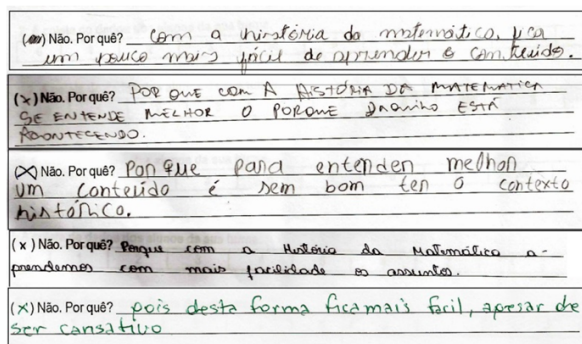 (x) Não. Por quê? Com a história da matemática, fica
um pouco mais fácil de aprender o conteúdo.
(x) Não. Por quê? POR QUE COM A HISTÓRIA DA MATEMATICA
SE ENTENDE MELHOR O PORQUE DAQUILO ESTÁ
ACONTECENDO.
(X) Não. Por quê? Porque para entender melhor
um conteúdo é sem bom ter o contexto
histórico.
(x) Não. Por quê? Porque com a História da Matemática a-
prendemos com mais facilidade os assuntos.
(x) Não. Por quê? pois desta forma fica mais fácil, apesar de
ser cansativo